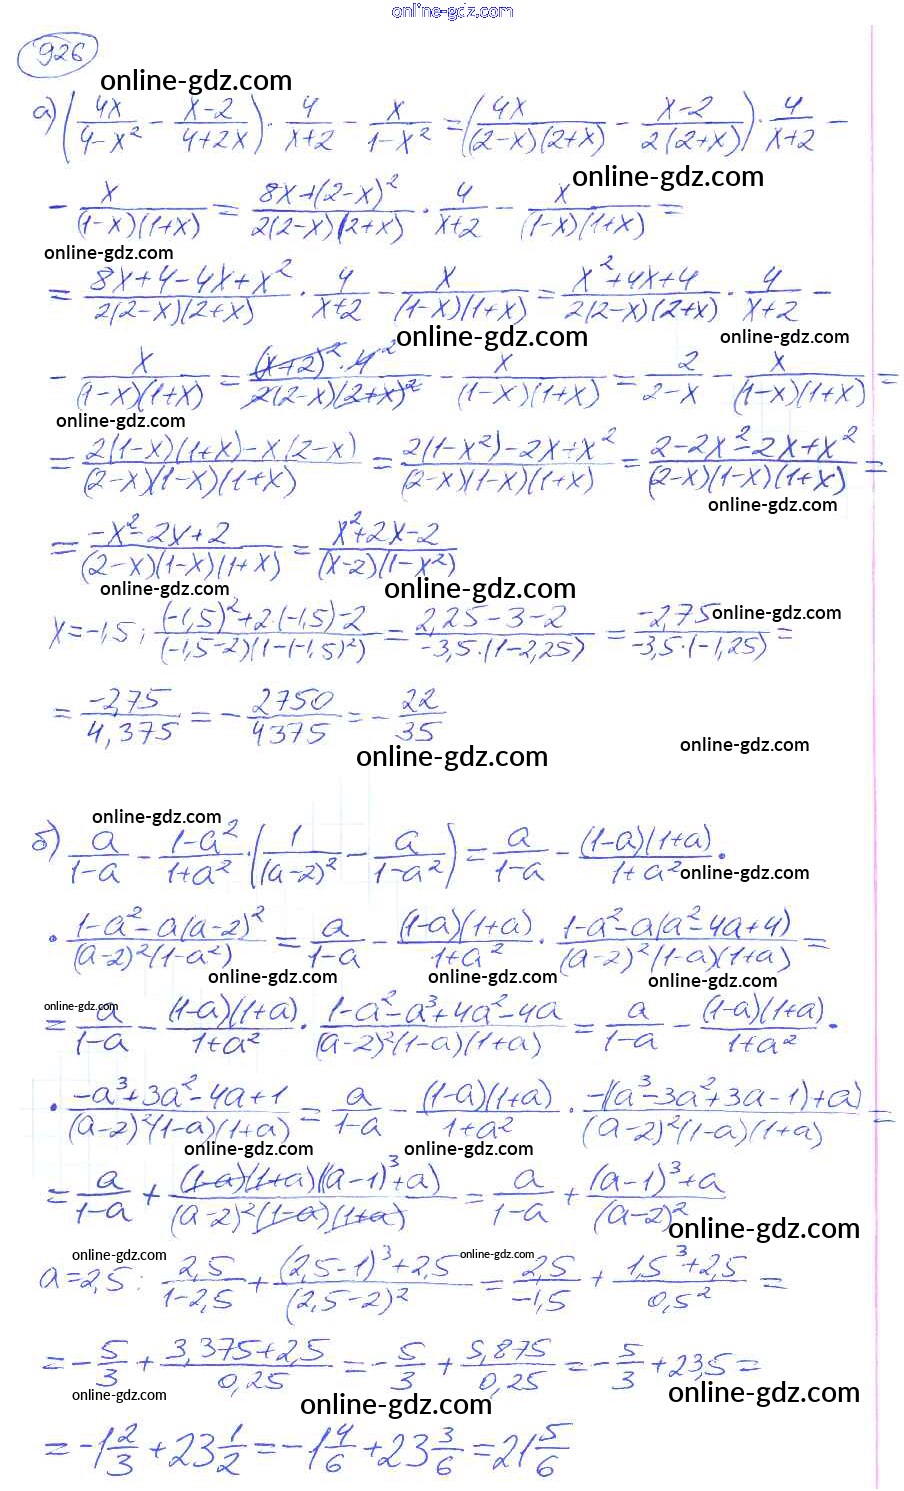 online-gdz.com
926
online-gdz.com
а) (4x/(4-x²) - (x-2)/(4+2x)) · 4/(x+2) - x/(1-x²) = (4x/((2-x)(2+x)) - (x-2)/(2(2+x))) · 4/(x+2) -
online-gdz.com
- x/((1-x)(1+x)) = (8x+(2-x)²)/(2(2-x)(2+x)) · 4/(x+2) - x/((1-x)(1+x)) =
online-gdz.com
= (8x+4-4x+x²)/(2(2-x)(2+x)) · 4/(x+2) - x/((1-x)(1+x)) = (x²+4x+4)/(2(2-x)(2+x)) · 4/(x+2) -
online-gdz.com online-gdz.com
- x/((1-x)(1+x)) = ((x+2)²·4²)/(2(2-x)(2+x)²) - x/((1-x)(1+x)) = 2/(2-x) - x/((1-x)(1+x)) =
online-gdz.com
= (2(1-x)(1+x)-x(2-x))/((2-x)(1-x)(1+x)) = (2(1-x²)-2x+x²)/((2-x)(1-x)(1+x)) = (2-2x²-2x+x²)/((2-x)(1-x)(1+x)) =
online-gdz.com
= (-x²-2x+2)/((2-x)(1-x)(1+x)) = (x²+2x-2)/((x-2)(1-x²))
online-gdz.com online-gdz.com
x=-1,5; ((-1,5)²+2·(-1,5)-2)/((-1,5-2)(1-(-1,5)²)) = (2,25-3-2)/(-3,5·(1-2,25)) = (-2,75)/(-3,5·(-1,25)) =
online-gdz.com
= (-2,75)/(4,375) = - 2750/4375 = - 22/35
online-gdz.com online-gdz.com
online-gdz.com
б) a/(1-a) - (1-a²)/(1+a²) · (1/(a-2)² - a/(1-a²)) = a/(1-a) - ((1-a)(1+a))/(1+a²) ·
online-gdz.com
· (1-a²-a(a-2)²)/((a-2)²(1-a²)) = a/(1-a) - ((1-a)(1+a))/(1+a²) · (1-a²-a(a²-4a+4))/((a-2)²(1-a)(1+a)) =
online-gdz.com online-gdz.com online-gdz.com
online-gdz.com
= a/(1-a) - ((1-a)(1+a))/(1+a²) · (1-a²-a³+4a²-4a)/((a-2)²(1-a)(1+a)) = a/(1-a) - ((1-a)(1+a))/(1+a²) ·
· (-a³+3a²-4a+1)/((a-2)²(1-a)(1+a)) = a/(1-a) - ((1-a)(1+a))/(1+a²) · (-((a³-3a²+3a-1)+a))/((a-2)²(1-a)(1+a)) =
online-gdz.com online-gdz.com
= a/(1-a) + ((1-a)(1+a)((a-1)³+a))/((a-2)²(1-a)(1+a)) = a/(1-a) + ((a-1)³+a)/(a-2)²
online-gdz.com
online-gdz.com online-gdz.com
a=2,5: 2,5/(1-2,5) + ((2,5-1)³+2,5)/(2,5-2)² = 2,5/(-1,5) + (1,5³+2,5)/0,5² =
= - 5/3 + (3,375+2,5)/0,25 = - 5/3 + 5,875/0,25 = - 5/3 + 23,5 =
online-gdz.com online-gdz.com online-gdz.com
= -1 2/3 + 23 1/2 = -1 4/6 + 23 3/6 = 21 5/6